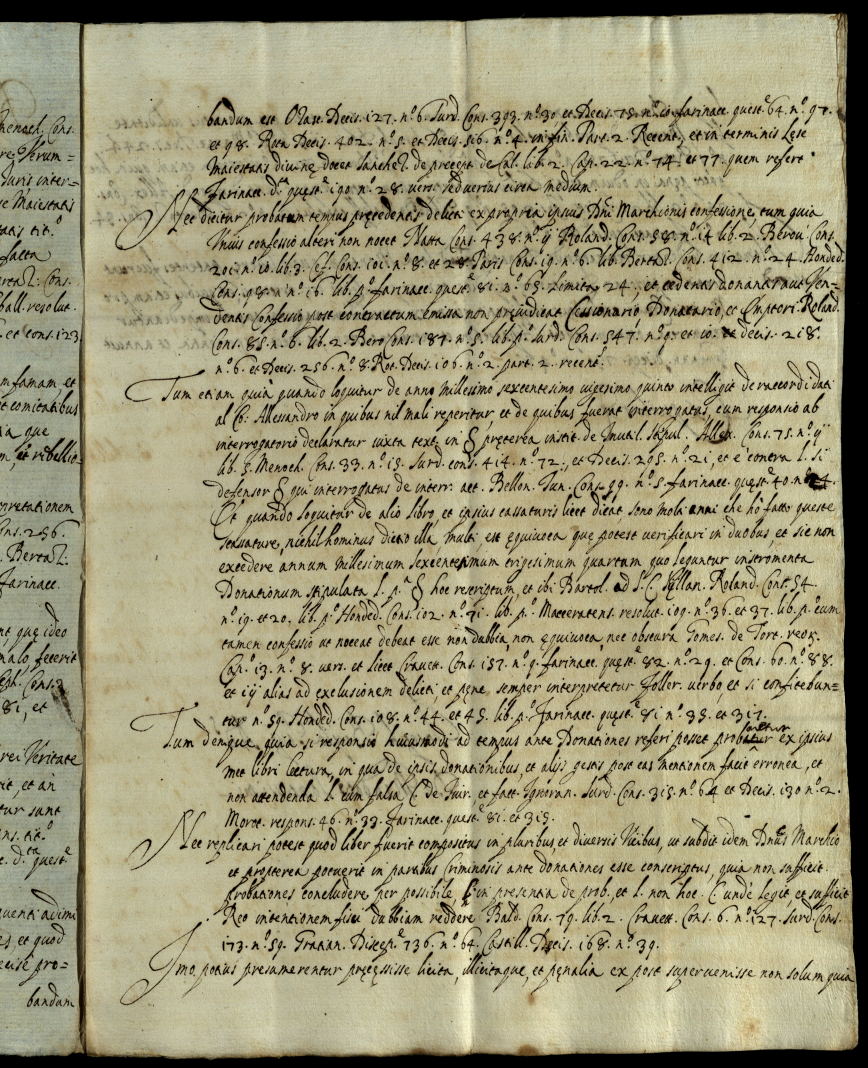 bandum est Otav. Decis. 127. n.º 6. Surd. Cons. 393. n.º 30, et Decis. 75. n.º 10. farinacc. quest.e 64. n.º 97.
et 98. Rota Decis. 402. n.º 5. et Decis. 516. n.º 4. in fin. Part. 2. Recent., et in terminis Lese
Maiestatis divinę docet Sanchez. de precept. decal. lib. 2. Cap. 22. n.º 74. et 77. quem refert
Farinacc. d.ª quest.e 190. n.º 28. vers. sed verius circa medium.
Nec dicitur probatum tempus precedentis delicti ex propria ipsius Dni Marchionis confessione, tum quia
Unius confessio alteri non nocet Natta Cons. 438. n.º ij Roland. Cons. 58. n.º 14 lib. 2. Berou. Cons.
201. n.º 10. lib. 3. Cef. Cons. 101. n.º 8. et 28 Paris Cons. 19. n.º 6. lib. Bertaz. Cons. 412. n.º 24. Honded.
Cons. 98. n.º 16. lib. p.º farinacc. quest. 81. n.º 65. limita 24., et cedentis donantis aut Ven=
dentis Confessio post contractum emissa non preiudicat Cessionario, Donatario, et Emptori. Roland.
Cons. 85. n.º 6. lib. 2. Bero Cons. 187. n.º 5. lib. p.º Surd. Cons. 547. n.º 9. et 10. decis. 218.
n.º 6. et Decis. 256. n.º 8. Rot. Decis. 106. n.º 2. part. 2. recent.
Tum etiam quia quando loquitur de anno millesimo sexcentesimo vigesimo quinto intelligit de raccordi dati
al Cb: Allessandro in quibus nil mali reperitur, et de quibus fuerat interrogatus, cum responsio ab
interrogatorio declaratur iuxta text. in § pręterea instit. de Inutil. stipul. Allex. Cons. 75. n.º ij
lib. 5. Menoch. Cons. 33. n.º 15. Surd. cons. 414. n.º 72., et Decis. 295. n.º 21, et è contra l. si
defensor § qui interrogatus de interr. act. Bellon. Iun. Cons. 99. n.º 5. farinacc. quęst.e 40. n.º 24.
Et quando loquitur de alio libro, et ipsius cassaturis licet dicat sono molti anni che hò fatto queste
scassature, nichil hominus dictio illa, multi, est ęquivoca que potest verificari in duobus et sic non
excedere annum millesimum sexcentesimum trigesimum quartum quo leguntur instromenta
Donationum stipulata l. p.ª § hoc rescriptum, et ibi Bartol. ad S. C. Syllan. Roland. Cons. 54
n.º 19. et 20. lib. p.º Honded. Cons. 102. n.º 71. lib. p.º Macceratens. resolut. 109. n.º 36. et 37. lib. p.º cum
tamen confessio ut noceat debeat esse non dubbia, non ęquivoca, nec obscura Gomes. de Tort. reor.
Cap.º 13. n.º 8. vers. et licet Cravett. Cons. 157. n.º 9. farinacc. quęst.e 82. n.º 29. et Cons. 60. n.º 88.
et iij alias ad exclusionem delicti et pęnę, semper interpretetur foller. verbo, et si confitebun=
tur n.º 59. Honded. Cons. 108. n.º 44. et 45. lib. p.º Farinacc. quęst.e 81 n.º 35. et 317.
Tum denique quia si responsio huiusmodi ad tempus ante Donationes referi posset probaretur ex ipsius
met libri lectura, in qua de ipsis donationibus, et alijs gestis post eas mentionem facit erronea, et
non attendenda l. cum falsa C. de Iuir. et fact. Ignoran. Surd. Cons. 315. n.º 64. et Decis. 130. n.º 2.
Morot. respons. 46. n.º 33. Farinacc. quęst.e 81. et 313.
Nec replicari potest quod liber fuerit compositus in pluribus, et diversis Vicibus, ut subdit idem Dnus Marchio
et propterea potuerit in partibus Criminosis ante donationes esse conscriptus, quia non sufficit
probationes concludere per possibile, l. in presentia de prob., et l. non hoc. C. undè legit et sufficit
Reo intentionem fisci dubbiam reddere Bald. Cons. 79. lib. 2. Cravett. Cons. 6. n.º 127. Surd. Cons.
173. n.º 59. Gratian. Discep.e 736. n.º 64. Castill. Decis. 168. n.º 39.
Imo, potius presumerentur pręęssisse licita, illicitaque, et pęnalia ex post supervenisse non solum quia